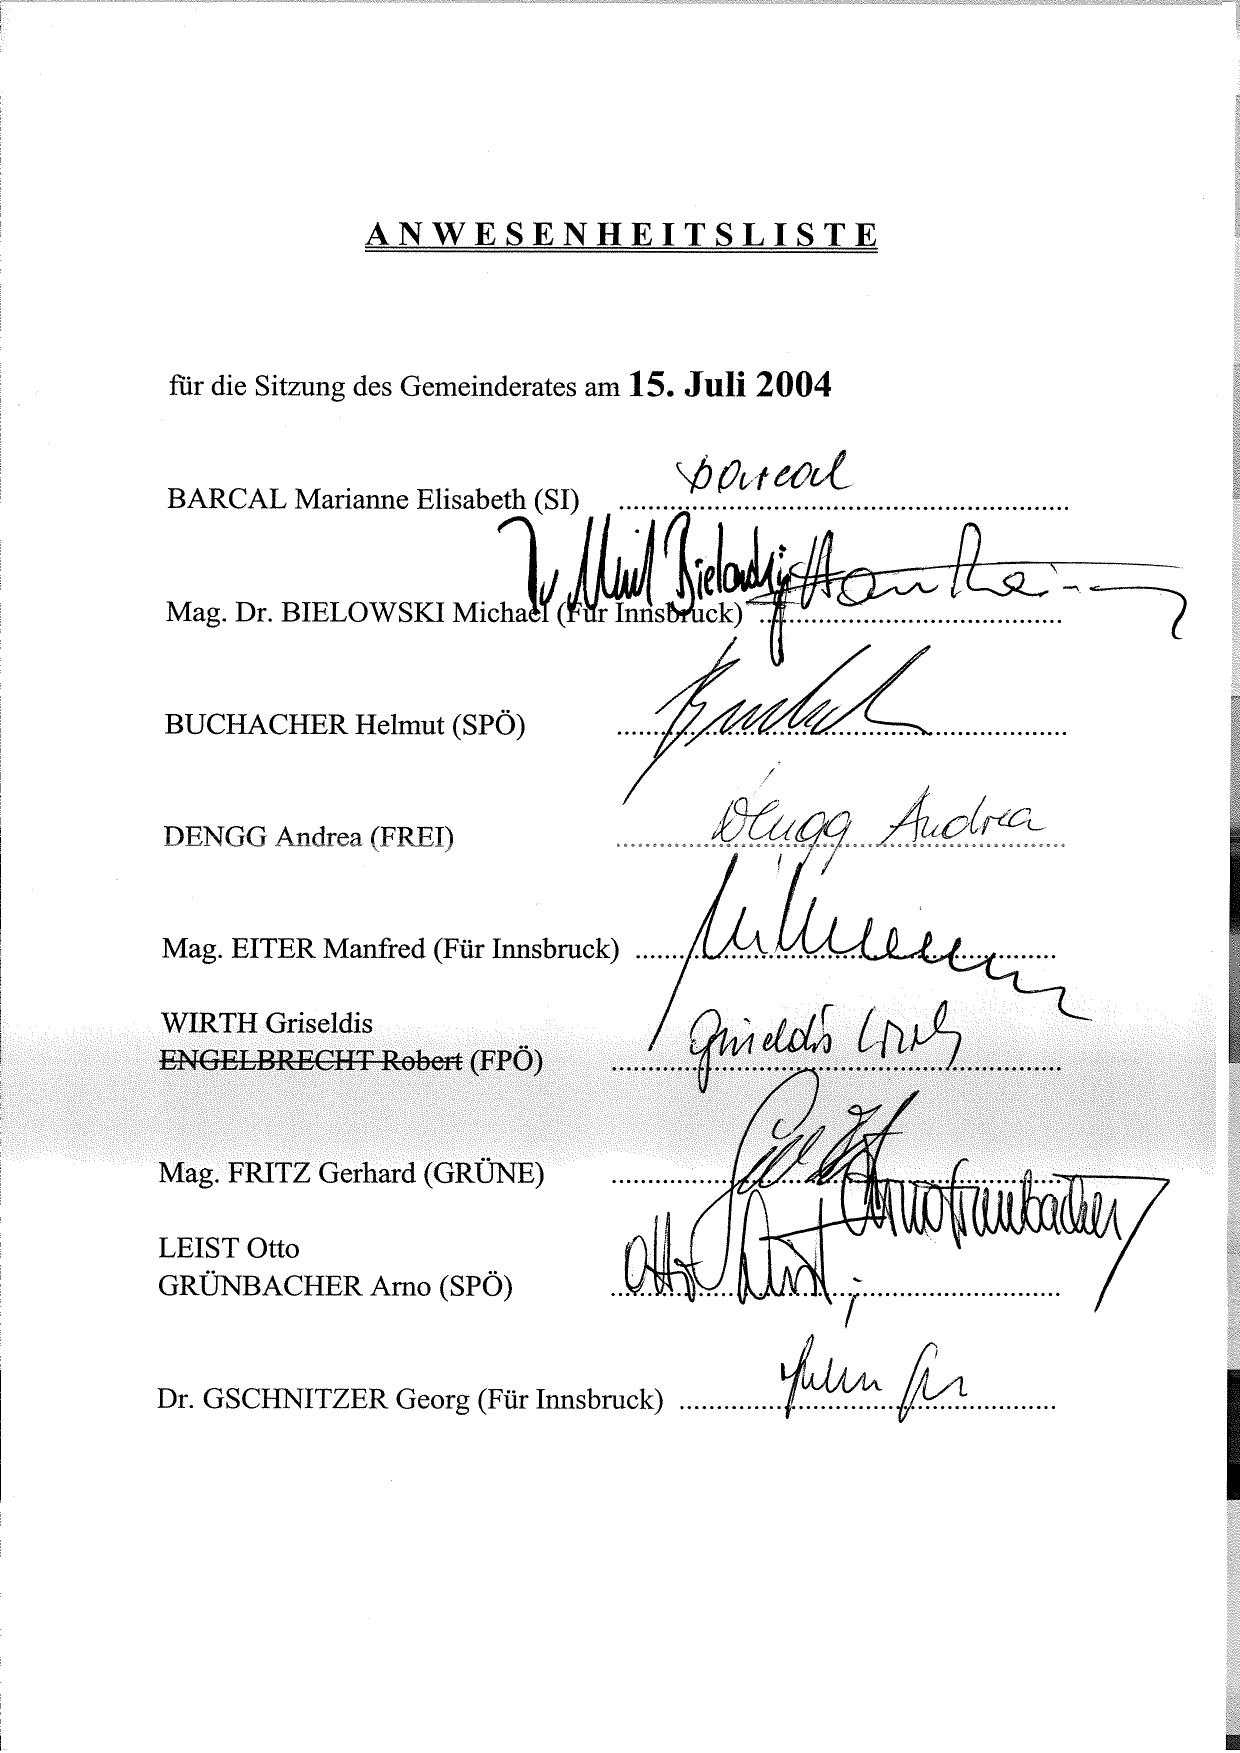 ANWESENHEITSLISTE
für die Sitzung des Gemeinderates am 15. Juli 2004
Barcal
BARCAL Marianne Elisabeth (SI) ........................................................
Dr Bielowski
Mag. Dr. BIELOWSKI Michael (Für Innsbruck) ......................................
BUCHACHER Helmut (SPÖ) ........................................................
Dengg Andrea
DENGG Andrea (FREI) ........................................................
Mag. EITER Manfred (Für Innsbruck) ....................................................
WIRTH Griseldis
Griseldis Wirth
ENGELBRECHT Robert (FPÖ) ........................................................
Mag. FRITZ Gerhard (GRÜNE) ........................................................
Arno Grünbacher
LEIST Otto
Otto Leist;
GRÜNBACHER Arno (SPÖ) ........................................................
Dr. GSCHNITZER Georg (Für Innsbruck) ...............................................